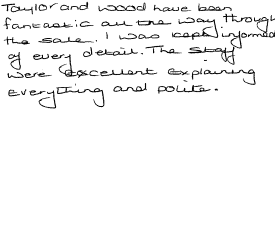 Taylor and wood have been
fantastic all the way through
the sale. I was kept informed
of every detail. The staff
were excellent explaining
everything and polite.